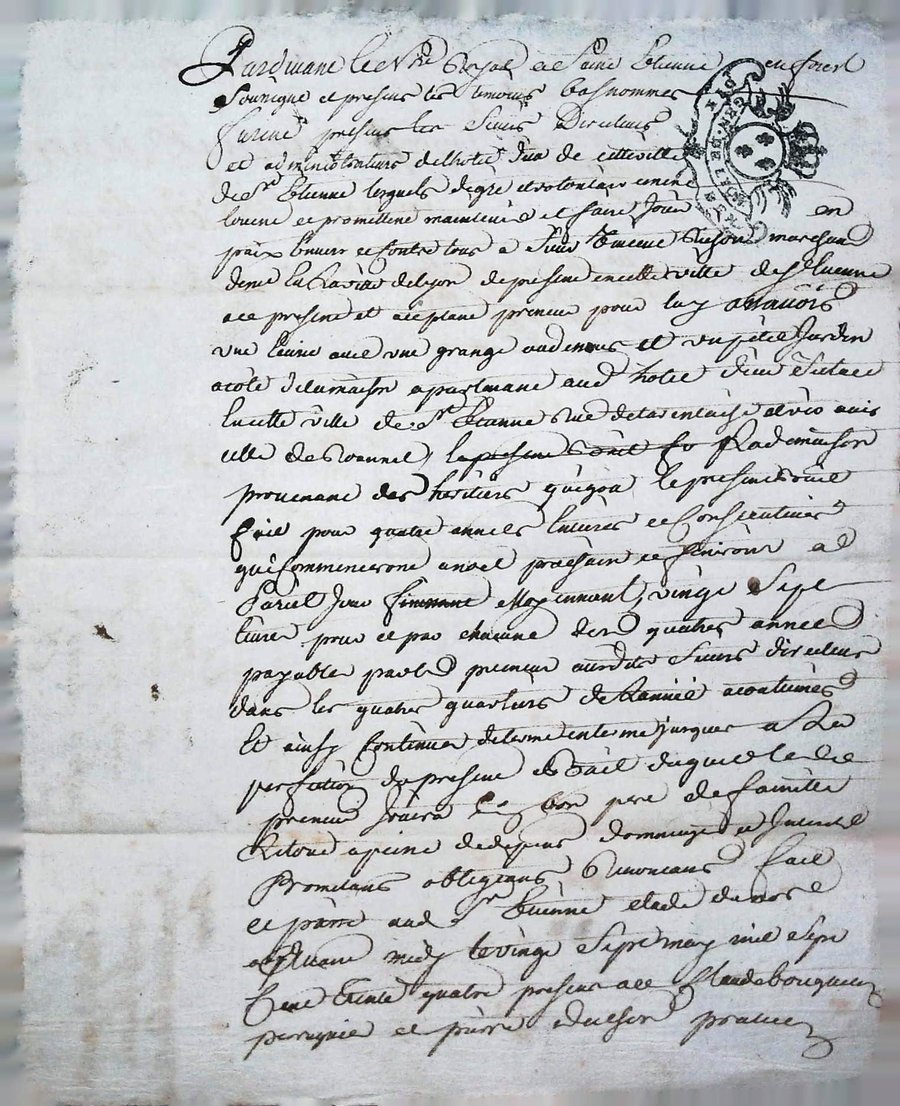 Pardevant le Nre Royal de Saint Etienne en forest
Soubsigné et present les temoins bas nommés
furent presents les Sieurs Directeurs
et administrateurs de lhotel dieu de cette ville
de St Etienne lesquels de gré et volontairement
louent et promettent maintenir et faire Jouir en
paix envers et contre tous a Sieur marchand
de la de present en cette ville de St Etienne
ace present et aceptant preneur pour luy
une avec une grange audessus et un petit Jardin
a coté de la maison apartenant aud hotel dieu Scituee
en cette ville de St Etienne rue de tarentaise
celle de Roannel, la maison
provenant des heritiers le present bail
fait pour quatre années entieres et Consecutives
qui Commenceront a noel prochain et finiront a
Pareil Jour moyennant vingt Sept
livres pour et par chacune des quatres années
payable par led preneur auxdits Sieurs directeurs
dans les quatres quartiers de Lannée acoutumés
Et ainsy Continuer de terme en terme jusques a La
perfection du present Bail duquel led
preneur Jouira en bon pere de famille
Le tout a peine de depens dommages et Interests
Promettans obligeans Renonceans fait
et passé aud St Etienne
avant midy le vingt Sept may mil Sept
Cent trente quatre present a ce Claude
et pierre